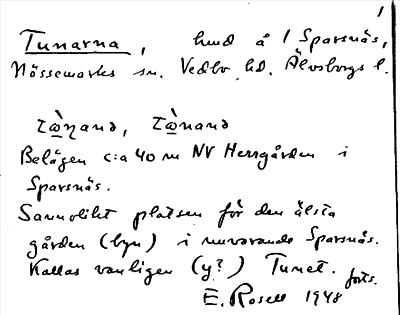 1
Tunarna, hmd å 1 Sparsnäs,
Nössemarks sn. Vedbo hd. Älvsborgs l.
Belägen c:a 40 m NV Herrgården i
Sparsnäs.
Sannolikt platsen för den älsta
gården (byn) i nuvarande Sparsnäs.
Kallas vanligen (y?) Tunet.
forts.
E. Rosell 1948